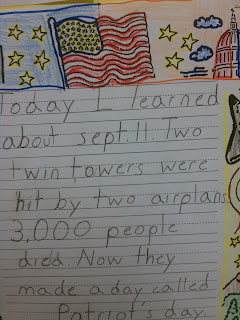 Today I learned
about sept.11. Two
twin towers were
hit by two airplans
3,000 people
died. Now they
made a day called
Patriot's day.